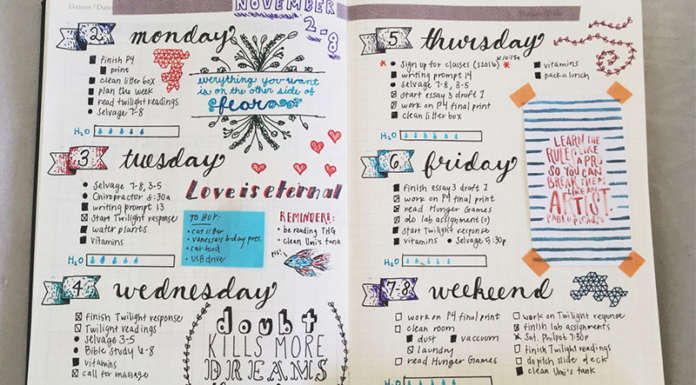 NOVEMBER
2-8
2 monday
finish P4
print
clean litter box
plan the week
read twilight readings
Selvage 7-8
H2O
everything you want
is on the other side of
fear
3 tuesday
Selvage 7-8, 3-5
Chiropractor
writing prompt 13
Start Twilight response
water plants
vitamins
H2O
Love is eternal
TO BUY:
cat litter
cat food
USB driver
REMINDERS:
be reading THG
clean Umi's tank
4 wednesday
finish Twilight response
Twilight readings
Selvage 3-5
Bible Study 6-8
vitamins
call for massage
doubt
KILLS MORE
DREAMS
5 thursday
sign up for classes
writing prompt 14
Selvage 7-8, 3-5
start essay 3 draft 1
work on P4 final print
clean litter box
vitamins
pack a lunch
H2O
LEARN THE
RULES LIKE
A PRO,
SO YOU CAN
BREAK THEM
LIKE AN
ARTIST
PABLO PICASSO
6 friday
finish essay 3 draft 1
work on P4 final print
read Hunger Games
do lab assignment
start Twilight response
vitamins
Selvage
H2O
7-8 weekend
work on P4 final print
clean room
dust
vaccum
laundry
read Hunger Games
work on Twilight response
finish lab assignments
Sat. Philpot 7:30p
finish Twilight readings
do slide deck
clean Umi's tank